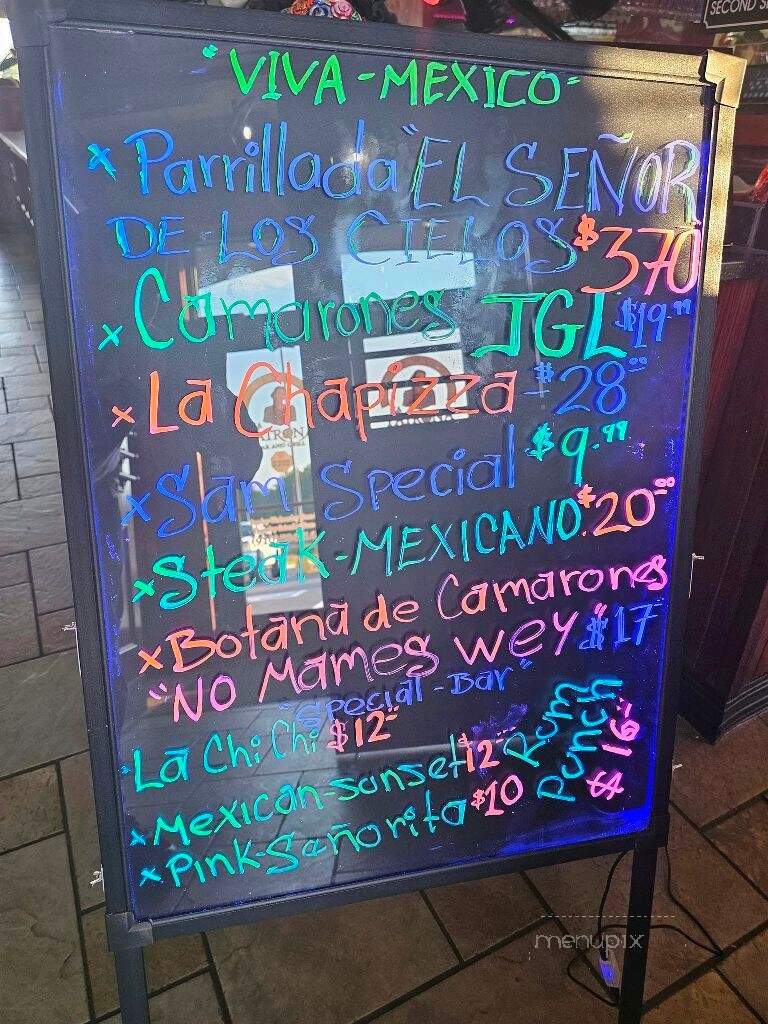 SECOND S
"VIVA-MEXICO"
x Parrillada "EL SEÑOR
DE LOS CIELOS $370
x Camarones JGL $19.99
x La Chapizza $28.00
x Sam Special $9.99
x Steak-MEXICANO $20.00
x Botana de Camarones
"NO MAMES WEY" $17
"Special-Bar"
La Chi Chi $12
x Mexican-sonset $12
x Pink-Señorita $10
Rum
Punch
$16
ATRON
BAR AND GRILL
menupix